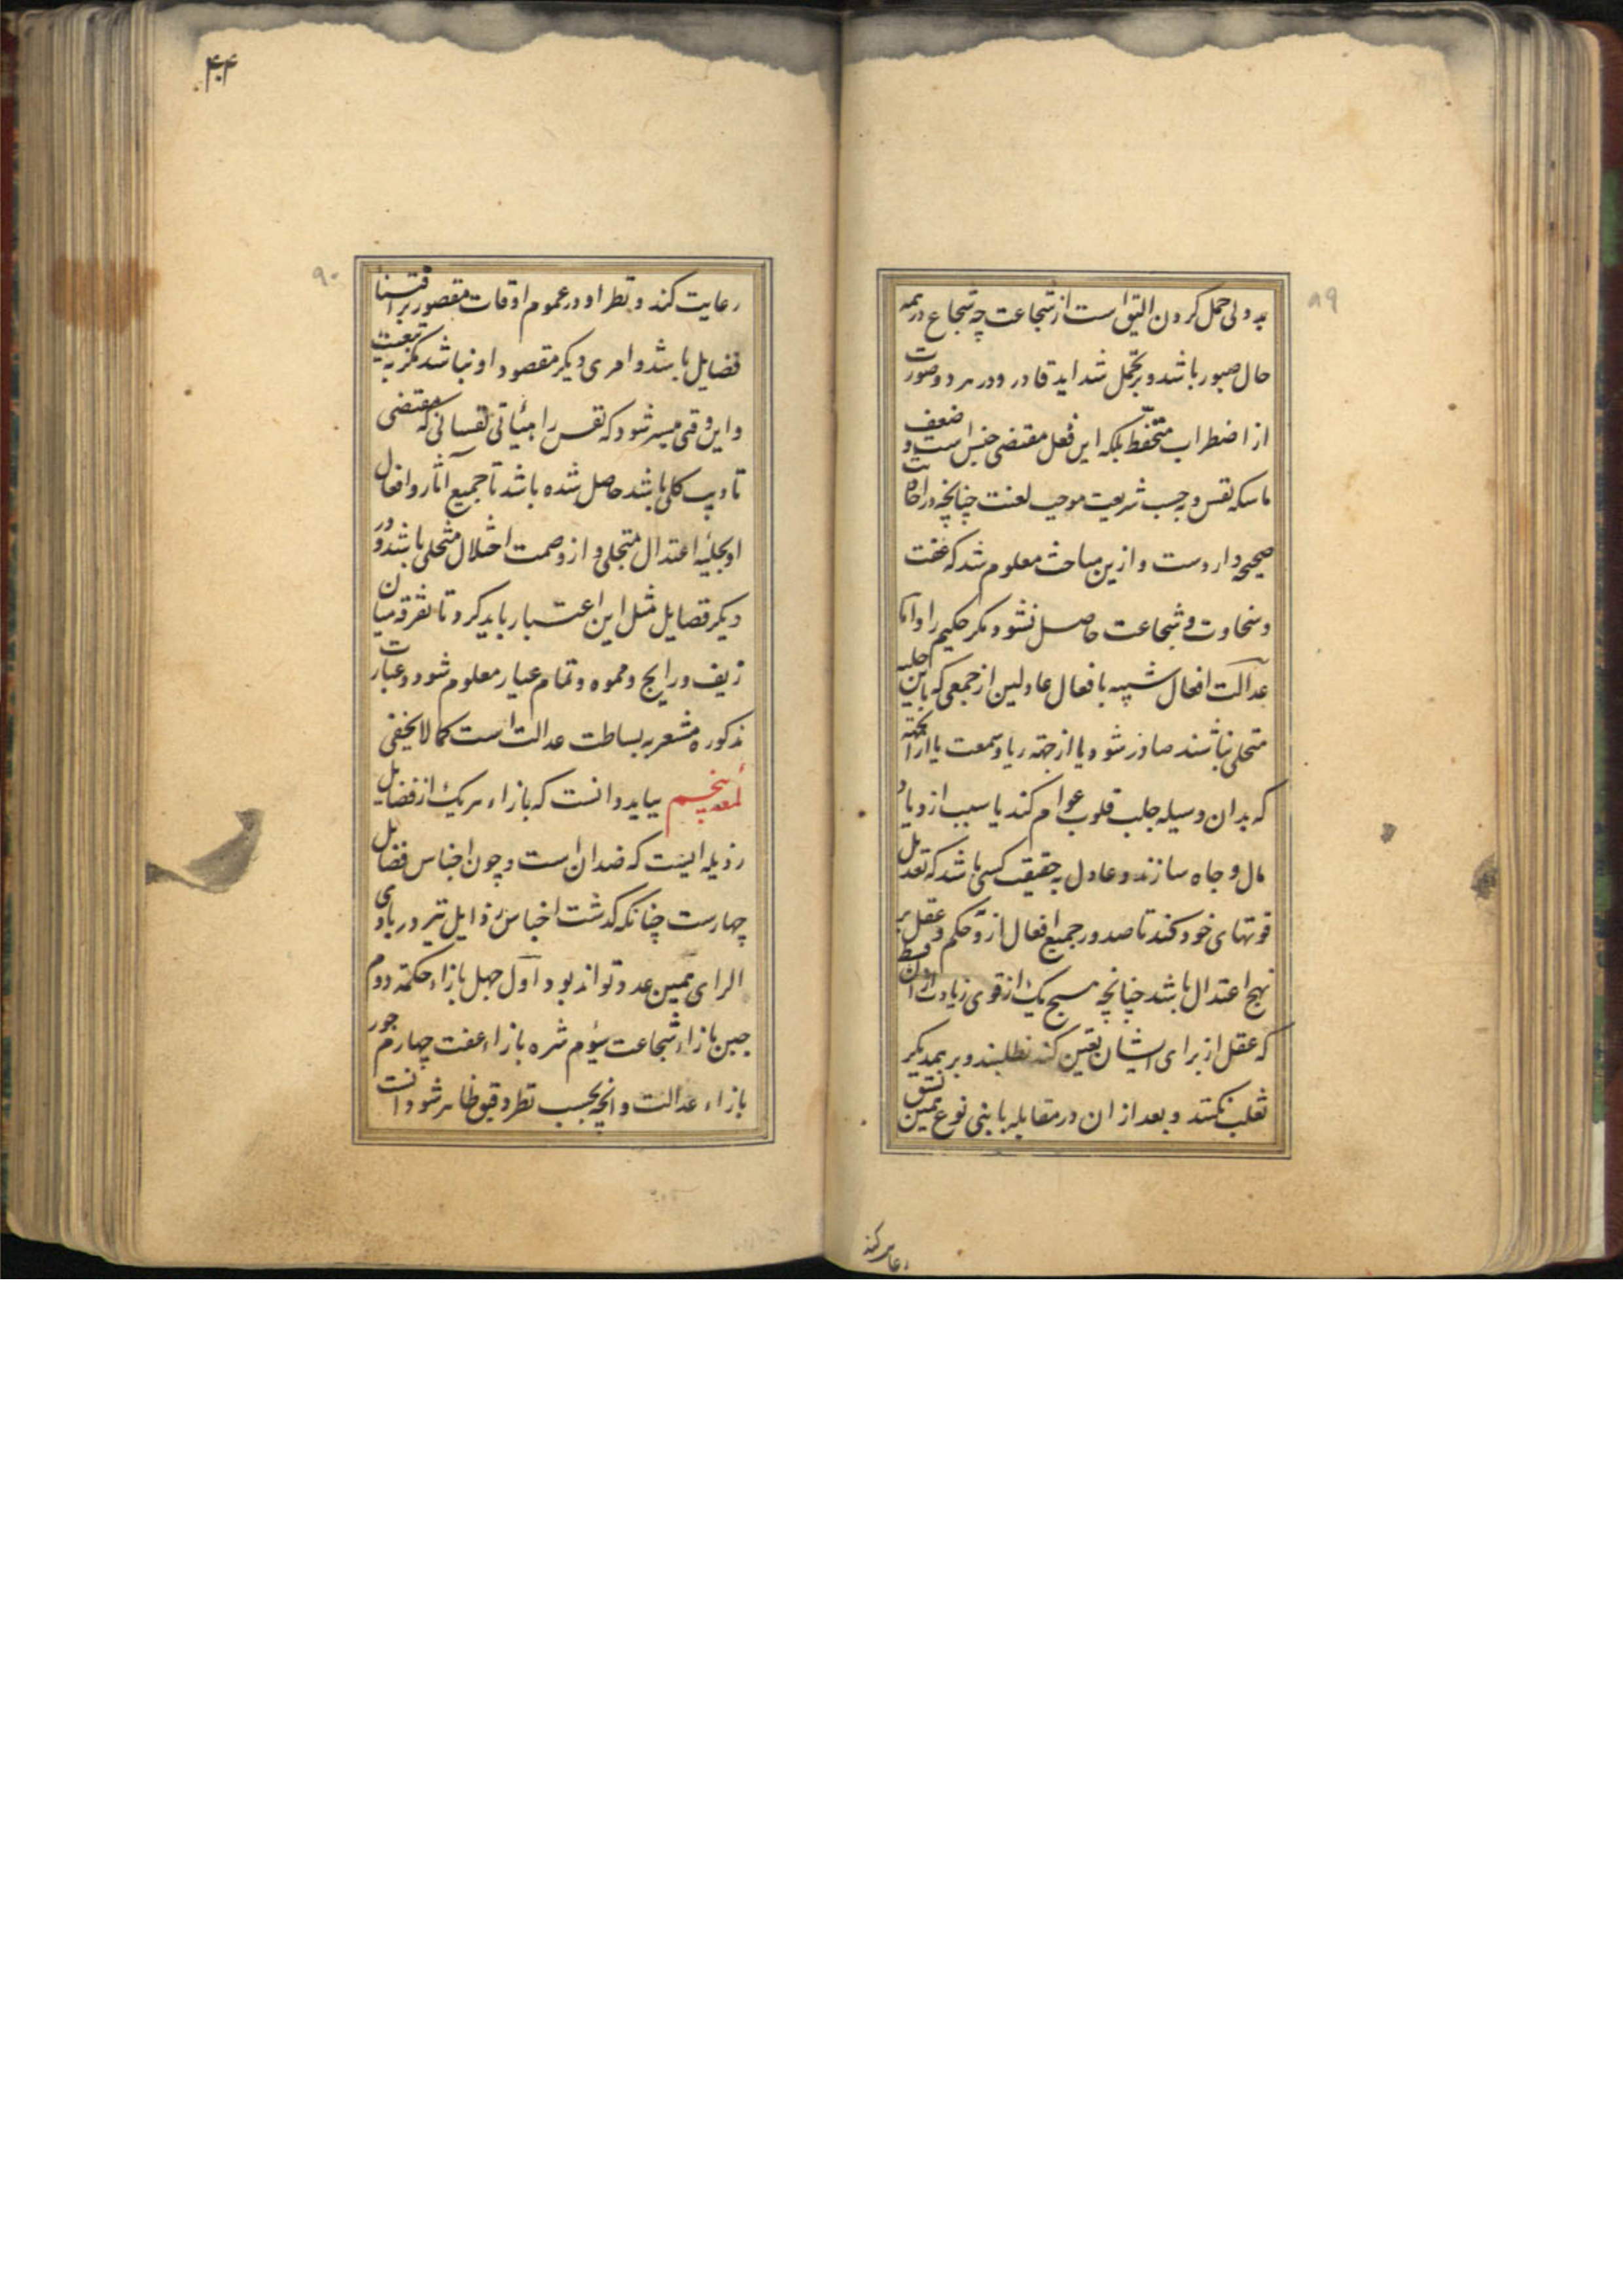 ۸۹
بددلی حمل کردن الیق است از شجاعت چه شجاع در همه
حال صبور باشد و بر تحمل شداید قادر و در هر دو صورت
از اضطراب متحفظ بلکه این فعل مقتضی جبن است و ضعف
ماسکه نفس و بحسب شریعت موجب لعنت چنانچه در احادیث
صحیحه وارد است و ازین مباحث معلوم شد که عفت
و سخاوت و شجاعت حاصل نشود مکر حکیم را و اما
عدالت افعال شبیه بافعال عادلین از جمعی که باین حلیه
متحلی نباشند صادر شود یا از جهة ریا و سمعت یا از آنجهته
که بدان وسیله جلب قلوب عوام کند یا سبب ازدیاد
مال و جاه سازند و عادل بحقیقت کسی باشد که تعدیل
قوتهای خود کند تا صدور جمیع افعال از و حکم عقل بر
نهج اعتدال باشد چنانچه هیچ یک از قوی زیادت از ان قسط
که عقل از برای ایشان تعین کند نطلبند و بر یکدیکر
تغلب نکنند و بعد از ان در مقابله با بنی نوع همین نسق
رعایت کند
۴۴
۹۰
رعایت کند و نظر او در عموم اوقات مقصور بر اقتناء
فضایل باشد و امری دیکر مقصود او نباشد مکر به تبعیت
و این وقتی میسر شود که نفس را هیئاتی نفسانی که مقتضی
تادیب کلی باشد حاصل شده باشد تا جمیع آثار و افعال
او بحلیه اعتدال متحلی و از وصمت اختلال متخلی باشد و در
دیکر فضایل مثل این اعتبار باید کرد تا تفرقه میان
زیف و رایج و مموه و تمام عیار معلوم شود و عبارت
مذکوره مشعر به بساطت عدالت است کما لا یخفی
لمعه پنجم بباید دانست که بازاء هر یک از فضایل
رذیله ایست که ضد ان است و چون اجناس فضایل
چهارست چنانکه کذشت اجناس رذایل نیز در بادی
الرای همین عدد تواند بود اول جهل بازاء حکمة دوم
جبن بازاء شجاعت سیوم شره بازاء عفت چهارم جور
بازاء عدالت و انچه بحسب نظر دقیق ظاهر شود انست